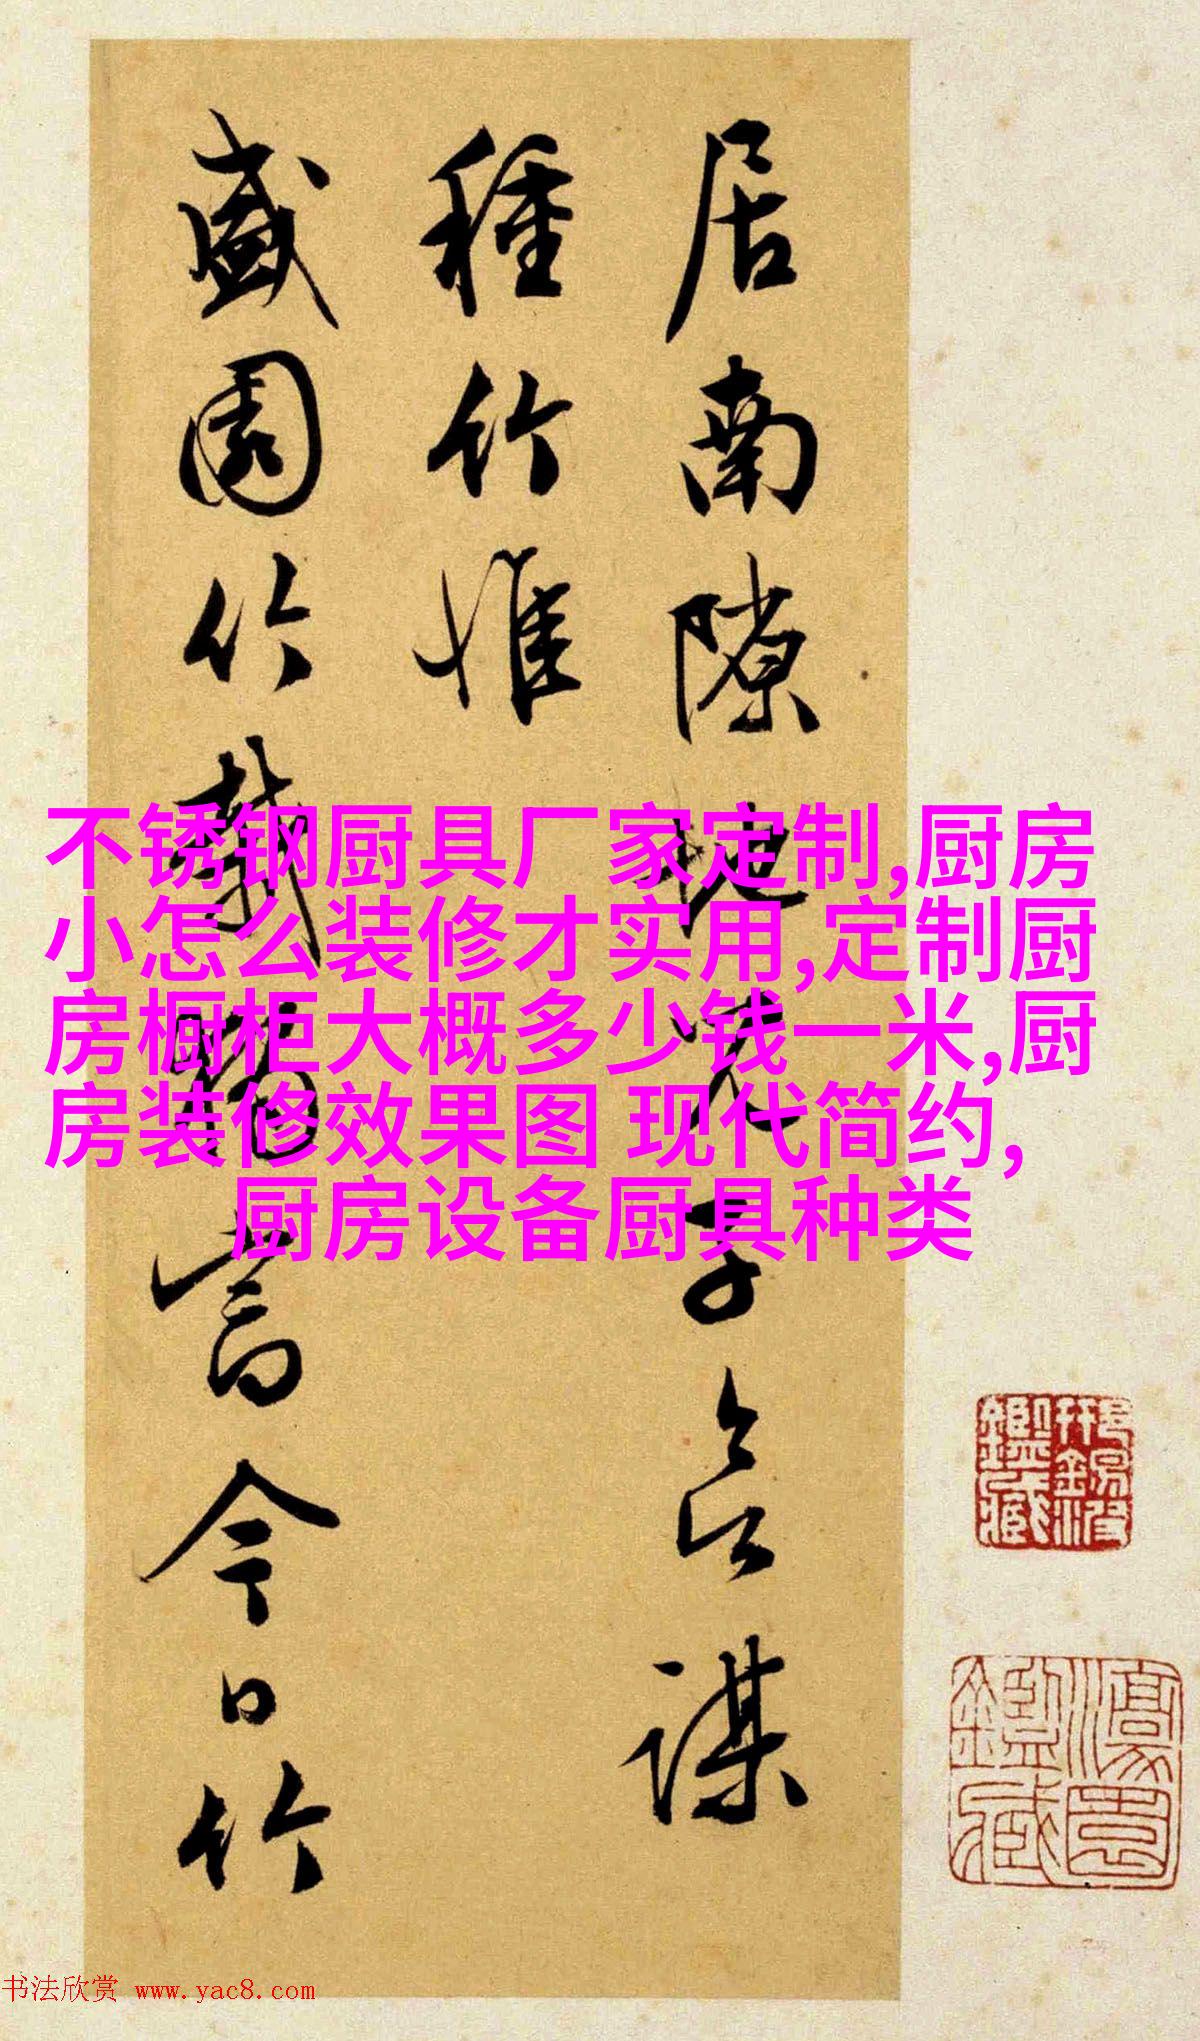 居南隙地兒子輩謀
種竹惟
盛園竹栽
言今日竹
不锈钢厨具厂家定制,厨房
小怎么装修才实用,定制厨
房橱柜大概多少钱一米,厨
房装修效果图 现代简约,
厨房设备厨具种类
鑑藏
鑑藏
书法欣赏 www.yac8.com